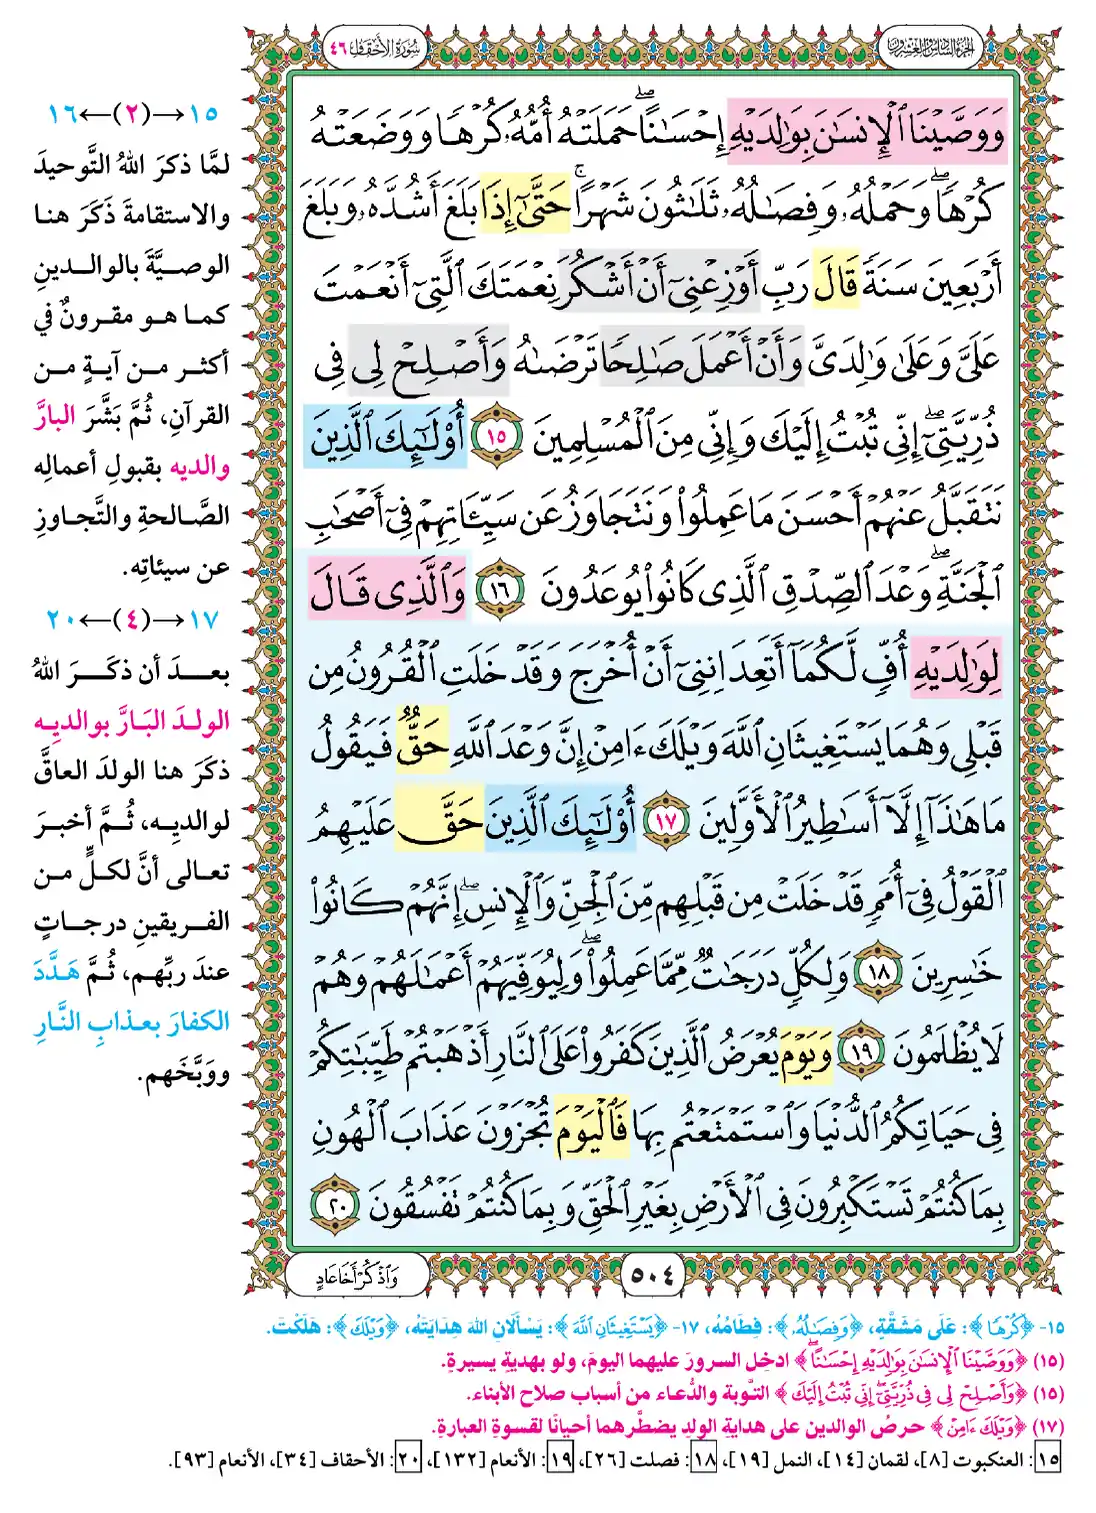 الجزء السادس والعشرون
سورة الأحقاف ٤٦
وَوَصَّيْنَا ٱلْإِنسَٰنَ بِوَٰلِدَيْهِ إِحْسَٰنًا ۖ حَمَلَتْهُ أُمُّهُۥ كُرْهًا وَوَضَعَتْهُ
كُرْهًا ۖ وَحَمْلُهُۥ وَفِصَٰلُهُۥ ثَلَٰثُونَ شَهْرًا ۚ حَتَّىٰٓ إِذَا بَلَغَ أَشُدَّهُۥ وَبَلَغَ
أَرْبَعِينَ سَنَةً قَالَ رَبِّ أَوْزِعْنِىٓ أَنْ أَشْكُرَ نِعْمَتَكَ ٱلَّتِىٓ أَنْعَمْتَ
عَلَىَّ وَعَلَىٰ وَٰلِدَىَّ وَأَنْ أَعْمَلَ صَٰلِحًا تَرْضَىٰهُ وَأَصْلِحْ لِى فِى
ذُرِّيَّتِىٓ ۖ إِنِّى تُبْتُ إِلَيْكَ وَإِنِّى مِنَ ٱلْمُسْلِمِينَ ١٥ أُو۟لَٰٓئِكَ ٱلَّذِينَ
نَتَقَبَّلُ عَنْهُمْ أَحْسَنَ مَا عَمِلُوا۟ وَنَتَجَاوَزُ عَن سَيِّـَٔاتِهِمْ فِىٓ أَصْحَٰبِ
ٱلْجَنَّةِ ۖ وَعْدَ ٱلصِّدْقِ ٱلَّذِى كَانُوا۟ يُوعَدُونَ ١٦ وَٱلَّذِى قَالَ
لِوَٰلِدَيْهِ أُفٍّ لَّكُمَآ أَتَعِدَانِنِىٓ أَنْ أُخْرَجَ وَقَدْ خَلَتِ ٱلْقُرُونُ مِن
قَبْلِى وَهُمَا يَسْتَغِيثَانِ ٱللَّهَ وَيْلَكَ ءَامِنْ إِنَّ وَعْدَ ٱللَّهِ حَقٌّ فَيَقُولُ
مَا هَٰذَآ إِلَّآ أَسَٰطِيرُ ٱلْأَوَّلِينَ ١٧ أُو۟لَٰٓئِكَ ٱلَّذِينَ حَقَّ عَلَيْهِمُ
ٱلْقَوْلُ فِىٓ أُمَمٍ قَدْ خَلَتْ مِن قَبْلِهِم مِّنَ ٱلْجِنِّ وَٱلْإِنسِ ۖ إِنَّهُمْ كَانُوا۟
خَٰسِرِينَ ١٨ وَلِكُلٍّ دَرَجَٰتٌ مِّمَّا عَمِلُوا۟ ۖ وَلِيُوَفِّيَهُمْ أَعْمَٰلَهُمْ وَهُمْ
لَا يُظْلَمُونَ ١٩ وَيَوْمَ يُعْرَضُ ٱلَّذِينَ كَفَرُوا۟ عَلَى ٱلنَّارِ أَذْهَبْتُمْ طَيِّبَٰتِكُمْ
فِى حَيَاتِكُمُ ٱلدُّنْيَا وَٱسْتَمْتَعْتُم بِهَا فَٱلْيَوْمَ تُجْزَوْنَ عَذَابَ ٱلْهُونِ
بِمَا كُنتُمْ تَسْتَكْبِرُونَ فِى ٱلْأَرْضِ بِغَيْرِ ٱلْحَقِّ وَبِمَا كُنتُمْ تَفْسُقُونَ ٢٠
٥٠٤
وَٱذْكُرْ أَخَا عَادٍ
١٥→(٢)←١٦
لمَّا ذكرَ اللهُ التَّوحيدَ
والاستقامةَ ذَكَرَ هنا
الوصيَّةَ بالوالدينِ
كما هو مقرونٌ في
أكثر من آيةٍ من
القرآنِ، ثُمَّ بَشَّرَ البارَّ
والديه بقبولِ أعمالِه
الصَّالحةِ والتَّجاوزِ
عن سيئاتِه.
١٧→(٤)←٢٠
بعدَ أن ذكَرَ اللهُ
الولدَ البَارَّ بوالديِه
ذكرَ هنا الولدَ العاقَّ
لوالديِه، ثُمَّ أخبرَ
تعالى أنَّ لكلٍّ من
الفريقينِ درجاتٍ
عندَ ربِّهم، ثُمَّ هَدَّدَ
الكفارَ بعذابِ النَّارِ
ووَبَّخَهم.
١٥- ﴿كُرْهًا﴾: عَلَى مَشَقَّةٍ، ﴿وَفِصَٰلُهُۥ﴾: فِطَامُهُ، ١٧- ﴿يَسْتَغِيثَانِ ٱللَّهَ﴾: يَسْأَلَانِ اللهَ هِدَايَتَهُ، ﴿وَيْلَكَ﴾: هَلَكْتَ.
(١٥) ﴿وَوَصَّيْنَا ٱلْإِنسَٰنَ بِوَٰلِدَيْهِ إِحْسَٰنًا ۖ﴾ ادخِل السرورَ عليهما اليومَ، ولو بهديةٍ يسيرةٍ.
(١٥) ﴿وَأَصْلِحْ لِى فِى ذُرِّيَّتِىٓ ۖ إِنِّى تُبْتُ إِلَيْكَ﴾ التَّوبة والدُّعاء من أسباب صلاح الأبناء.
(١٧) ﴿وَيْلَكَ ءَامِنْ﴾ حرصُ الوالدين على هدايةِ الولدِ يضطَّرهما أحيانًا لقسوةِ العبارةِ.
١٥: العنكبوت [٨]، لقمان [١٤]، النمل [١٩]، ١٨: فصلت [٢٦]، ١٩: الأنعام [١٣٢]، ٢٠: الأحقاف [٣٤]، الأنعام [٩٣].